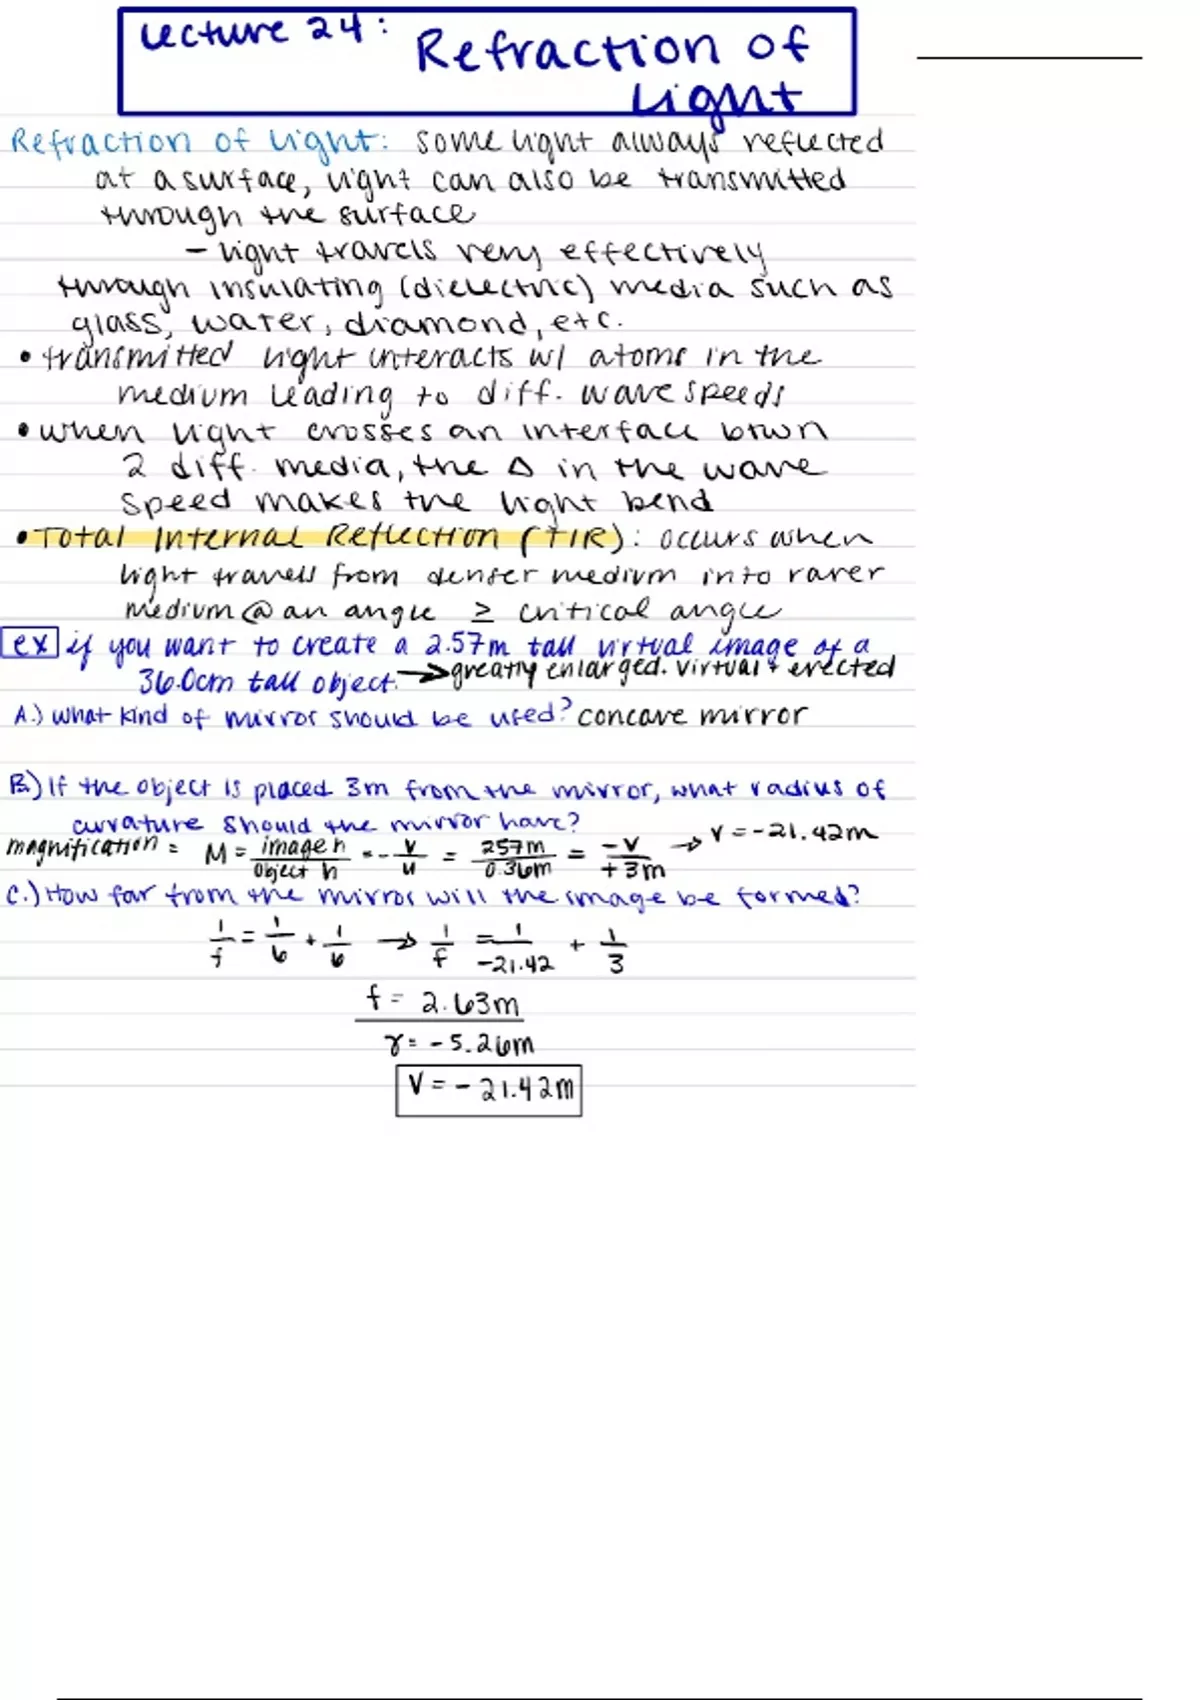 Lecture 24: Refraction of
Light
Refraction of Light: some light always reflected
at a surface, light can also be transmitted
through the surface
- light travels very effectively
through insulating (dielectric) media such as
glass, water, diamond, etc.
• transmitted light interacts w/ atoms in the
medium leading to diff. wave speeds
• when light crosses an interface btwn
2 diff. media, the Δ in the wave
speed makes the light bend
• Total Internal Reflection (TIR): occurs when
light travels from denser medium into rarer
medium @ an angle ≥ critical angle
ex if you want to create a 2.57m tall virtual image of a
36.0cm tall object. → greatly enlarged. virtual + erected
A.) what kind of mirror should be used? concave mirror
B.) If the object is placed 3m from the mirror, what radius of
curvature should the mirror have?
magnification = M = image h / object h = - v/u = 257m / 0.36m = -v / +3m → v = -21.42m
C.) How far from the mirror will the image be formed?
1/f = 1/6 + 1/6 → 1/f = 1/-21.42 + 1/3
f = 2.63m
r = -5.26m
V = -21.42m